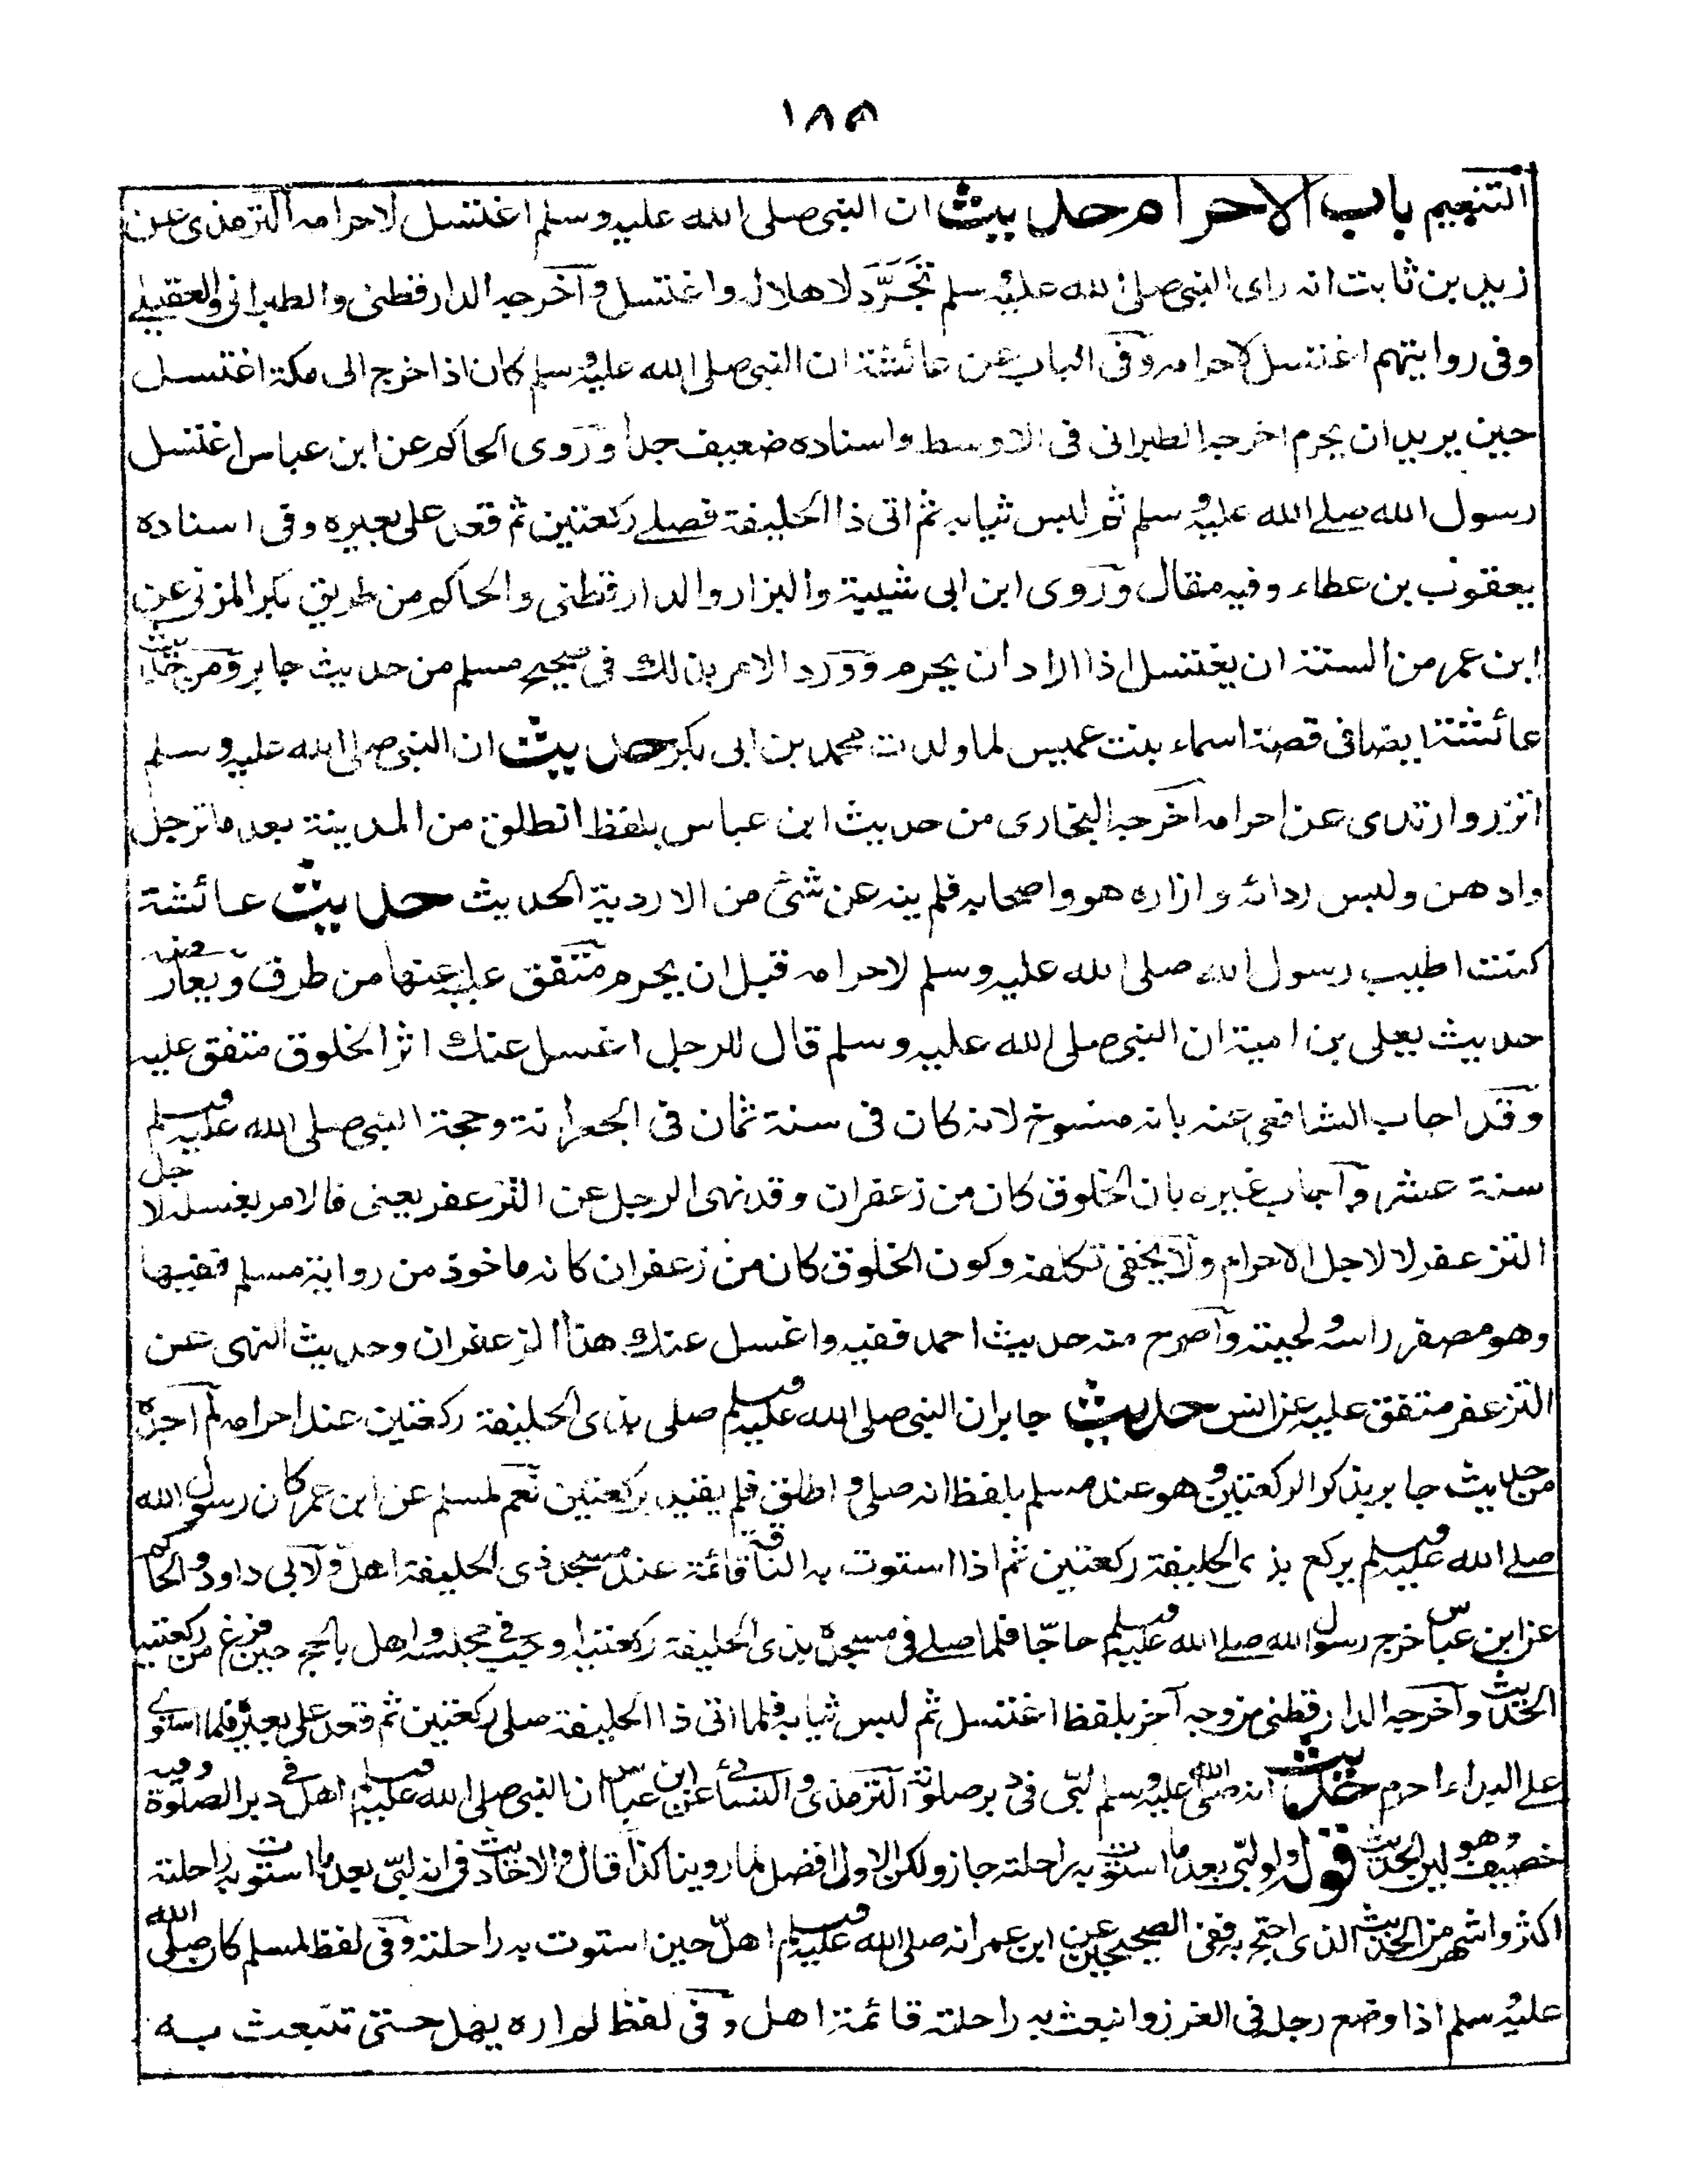 ١٨٥
التنعيم باب الاحرام حديث ان النبي صلى الله عليه وسلم اغتسل لاحرامه الترمذي عن
زيد بن ثابت انه راى النبي صلى الله عليه وسلم تَجَرَّد لاهلاله واغتسل واخرجه الدارقطنى والطبرانى والعقيلے
وفى روايتهم اغتسل لاحرامه وفى الباب عن عائشة ان النبي صلى الله عليه وسلم كان اذا خرج الى مكة اغتسل
حين يريد ان يحرم اخرجه الطبرانى فى الاوسط واسناده ضعيف جدا وروى الحاكم عن ابن عباس اغتسل
رسول الله صلے الله عليه وسلم ثم لبس ثيابه ثم اتى ذا الحليفة فصلے ركعتين ثم قعد على بعيره وفى اسناده
يعقوب بن عطاء وفيه مقال وروى ابن ابى شيبة والبزار والدارقطنى والحاكم من طريق بكر المزنى عن
ابن عمر من السنة ان يغتسل اذا اراد ان يحرم وورد الامر بذلك فى صحيح مسلم من حديث جابر ومن حديث
عائشة ايضا فى قصة اسماء بنت عميس لما ولدت محمد بن ابى بكر حديث ان النبي صلى الله عليه وسلم
اتزر وارتدى عند احرامه اخرجه البخارى من حديث ابن عباس بلفظ انطلق من المدينة بعد ما ترجل
وادهن ولبس ردائه وازاره هو واصحابه فلم ينه عن شئ من الاردية الحديث حديث عائشة
كنت اطيب رسول الله صلى الله عليه وسلم لاحرامه قبل ان يحرم متفق عليه عنها من طرق ويعارضه
حديث يعلى بن امية ان النبي صلى الله عليه وسلم قال للرجل اغسل عنك اثر الخلوق متفق عليه
وقد اجاب الشافعى عنه بانه منسوخ لانه كان فى سنة ثمان فى الجعرانة وحجة النبي صلى الله عليه وسلم
سنة عشر واجاب غيره بان الخلوق كان من زعفران وقد نهى الرجل عن التزعفر يعنى فالامر بغسله لاجل
التزعفر لا لاجل الاحرام ولا يخفى تكلفه وكون الخلوق كان من زعفران كانه ماخوذ من رواية مسلم ففيها
وهو مصفر راسه ولحيته واصرح منه حديث احمد ففيه واغسل عنك هذا الزعفران وحديث النهى عن
التزعفر متفق عليه عن انس حديث جابر ان النبي صلى الله عليه وسلم صلى بذى الحليفة ركعتين عند احرامه لم اجده
من حديث جابر بذكر الركعتين وهو عند مسلم بلفظ انه صلى واطلق فلم يقيد بركعتين نعم لمسلم عن ابن عمر كان رسول الله
صلے الله عليه وسلم يركع بذى الحليفة ركعتين ثم اذا استوت به الناقة قائمة عند مسجد ذى الحليفة اهلّ ولابى داود والحاكم
عن ابن عباس خرج رسول الله صلے الله عليه وسلم حاجّا فلما صلے فى مسجده بذى الحليفة ركعتيه اوجب فى مجلسه واهل بالحج حين فرغ من ركعتيه
الحديث واخرجه الدارقطنى من وجه آخر بلفظ اغتسل ثم لبس ثيابه فلما اتى ذا الحليفة صلى ركعتين ثم قعد على بعيره فلما استوے
علے البيداء احرم حديث انه صلى الله عليه وسلم لبّى فى دبر صلوته الترمذى والنسائے عن ابن عباس ان النبي صلى الله عليه وسلم اهل فى دبر الصلوة وفيه
خصيف وهو لين الحديث قوله ولو لبّى بعد ما استوت به راحلته جاز ولكن الاول افضل لما روينا كذا قال والاحاديث فى انه لبّى بعد ما استوت به راحلته
اكثر واشهر من الحديث الذى احتج به ففى الصحيحين عن ابن عمر انه صلى الله عليه وسلم اهلّ حين استوت به راحلته وفى لفظ لمسلم كان صلى الله
عليه وسلم اذا وضع رجله فى الغرز وانبعث به راحلته قائمة اهل وفى لفظ لم اره يهل حتى تنبعث به